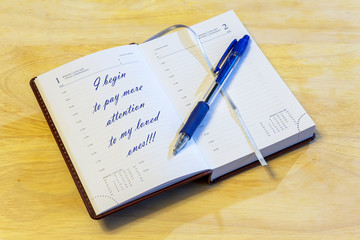 1
2
I begin
to pay more
attention
to my loved
ones!!!